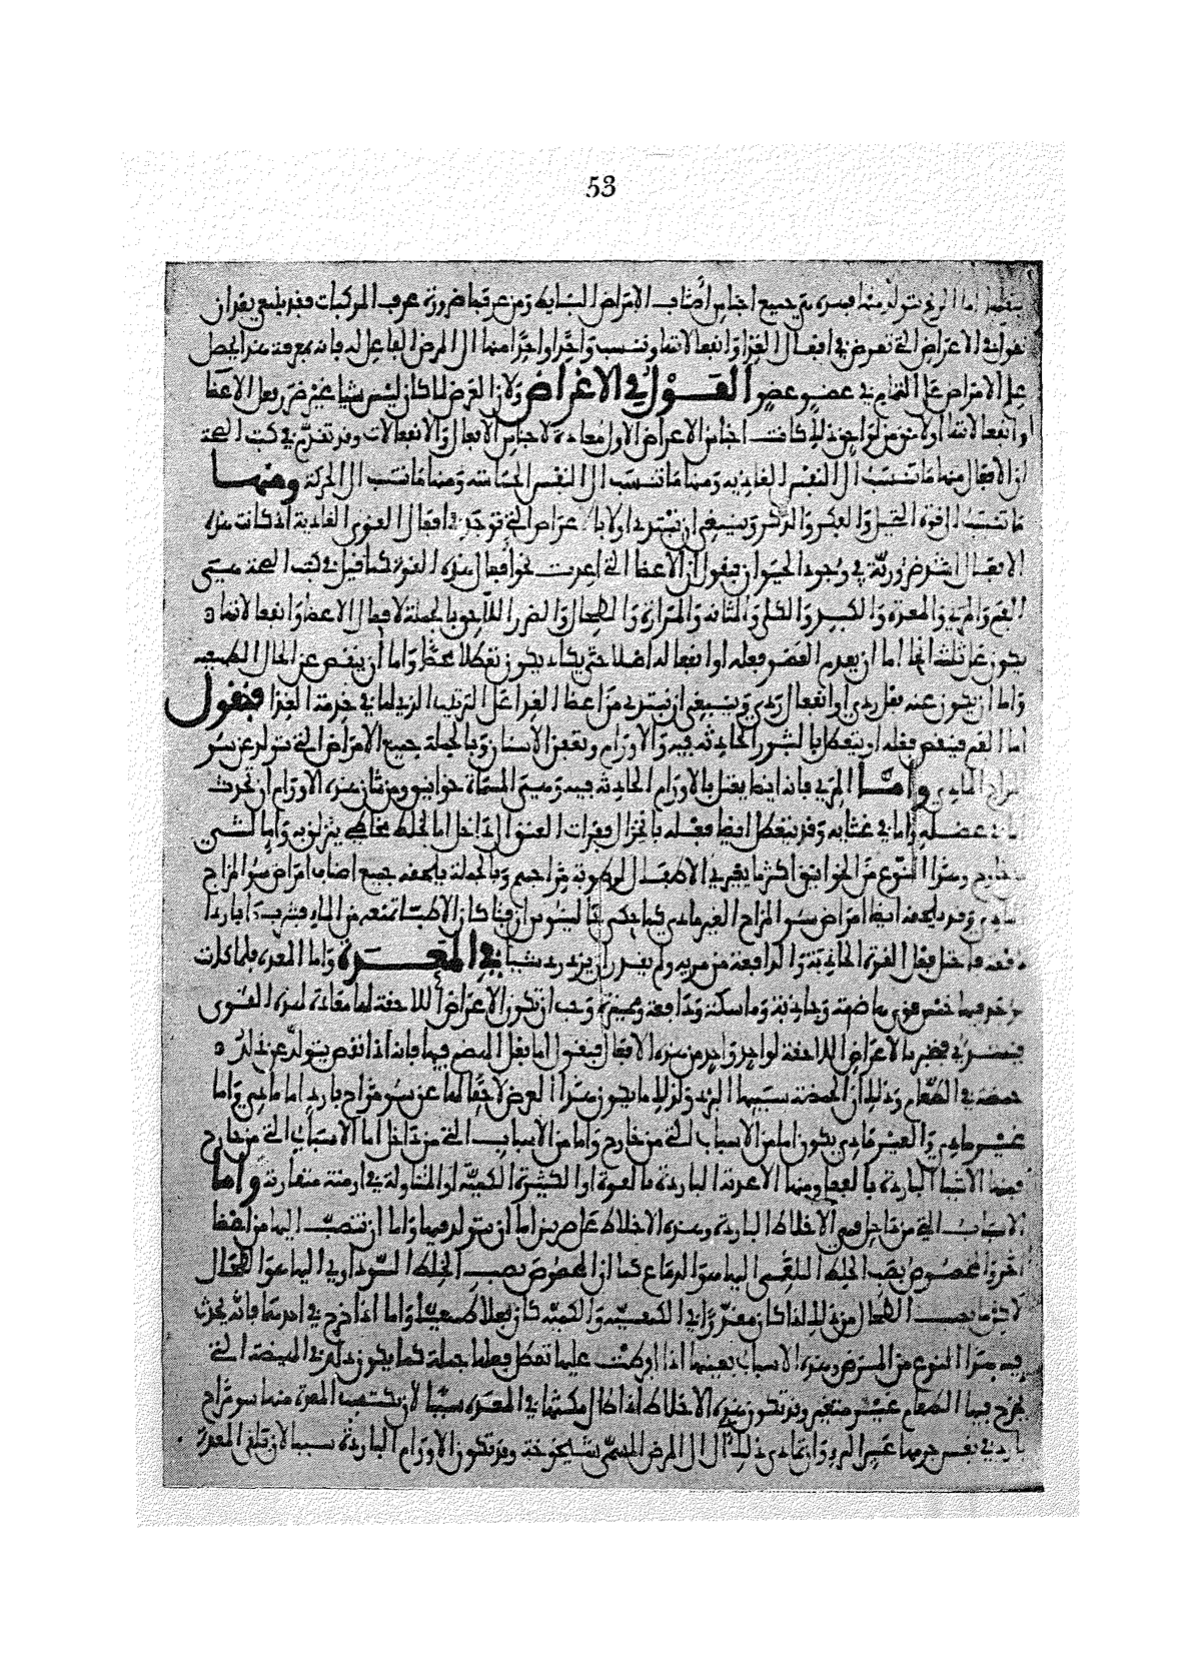 53
جميع اجناس اصناف الامراض السابقة ومن عرفها ضرورة عرف المركبات فقد ينبغي بعد ان
نقول في الاعراض التي تعرض في افعال الغذا وانفعالاتها وننسب واحدا واحدا منها الى المرض الفاعل له فانه بمعرفة هذا يحصل
على الامراض على التمام في عضو عضو القول في الاعراض ولان العرض لما كان ليس شيا غير ضرر بعل الاعضا
او انفعالاتها او لاحق من لواحق ذلك كانت اجناس الاعراض الاول معادة لاجناس الافعال والانفعالات وقد تقدم في كتاب الصحة
ان الافعال منها ما تنسب الى النفس الغاذية ومنها ما تنسب الى النفس الحساسة ومنها ما تنسب الى الحركة ومنها
ما تنسب الى قوة التخيل والفكر والذكر وينبغي ان نبتدى اولا بالاعراض التي توجد في افعال القوى الغاذية اذ كانت هذه
الافعال اشد ضرورية في وجود الحيوان فنقول ان الاعضا التي اعدت نحو افعال هذه القوة كما قيل في كتاب الصحة هي
الفم والمرى والمعدة والكبد والكلى والمثانة والمرارة والطحال والضرر اللاحق بالجملة لافعال الاعضا وانفعالاتها
يكون على ثلثة انحا اما ان يعدم العضو فعله او انفعاله اصلا حتى يكاد يكون تعطلا محضا واما ان ينقص عن الحال الطبيعية
واما ان يكون عنه فعل ردي او انفعال ردي وينبغي ان نبتدى من اعضا الغذا على الترتيب الذي لها في خدمة الغذا فنقول
اما الفم فينقص فعله او يتعطل بالبثور الحادثة فيه والاورام ونقص الاسنان وبالجملة جميع الامراض التي تتولد عن سو
المزاج المادي واما المرى فانه ايضا يعتل بالاورام الحادثة فيه وهي المسماة خوانيق ومن شان هذه الاورام ان تحدث
اما في عضله واما في غشايه وقد يتعطل ايضا فعله بانخزال فقرات العنق الى داخل اما لخلط مخاطي يزلق به واما لشي
من خارج وهذا النوع من الخوانيق اكثر ما يعتري الاطفال لرطوبة مزاجهم وبالجملة يلحقه جميع اصناف امراض سو المزاج
المادي وقد يلحقه ايضا امراض سو المزاج الغير مادي كما حكى جالينوس ان فتى كان الاطبا تمنعه من الما فشرب ما باردا
دفعة فاختل فعل القوة الجاذبة والدافعة من مريه ولم يقدر ان يزدرد شيا في المعدة واما المعدة فلما كانت
توجد فيها خمس قوى هاضمة وجاذبة وماسكة ودافعة ومميزة وجب ان تكون الاعراض اللاحقة لها معادة لهذه القوى
فنبتدى نحن بالاعراض اللاحقة لواحد واحد من هذه الافعال فنقول اما فعل الهضم فيها فانه اذا نقص يتولد عن ذلك
حمضة في الطعام وذلك ان الحمضة سببها البرد ولذلك ما يكون هذا العرض لاحقا لها عن سو مزاج بارد اما مادي واما
غير مادي والغير مادي يكون اما من الاسباب التي من خارج واما من الاسباب التي من داخل اما الاسباب التي من خارج
فمنها الاشيا الباردة بالفعل ومنها الاغذية الباردة بالقوة او الكثيرة الكمية او المتناولة في ازمنة متقاربة واما
الاسباب التي من داخل فهي الاخلاط الباردة وهذه الاخلاط على ضربين اما ان يتولد فيها واما ان تنصب اليها من اعضا
اخر والمخصوص بصب الخلط البلغمي اليها هو الدماغ كما ان المخصوص بصب الخلط السوداوي اليها هو الطحال
لكن ما يصب الطحال من ذلك اذا كان مقدرا في الكيفية والكمية كان فعلا طبيعيا واما اذا خرج في احدهما فانه يحدث
فيه هذا النوع من المرض وهذه الاسباب بعينها اذا افرطت عليها تعطل فعلها جملة كما يكون ذلك في الهيضة التي
يخرج فيها الطعام غير متغير وقد تكون هذه الاخلاط اذا طال مكثها في المعدة سببا لان تكتسب المعدة منها سو مزاج
بارد في نفس جرمها عسر البرو وان تمادى ذلك ال الى المرض المسمى شيخوخة وقد تكون الاورام الباردة سببا لان تلقى المعدة